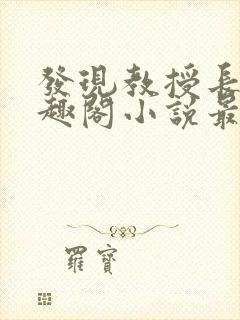 發現教授長
趣閣小說最
羅寶